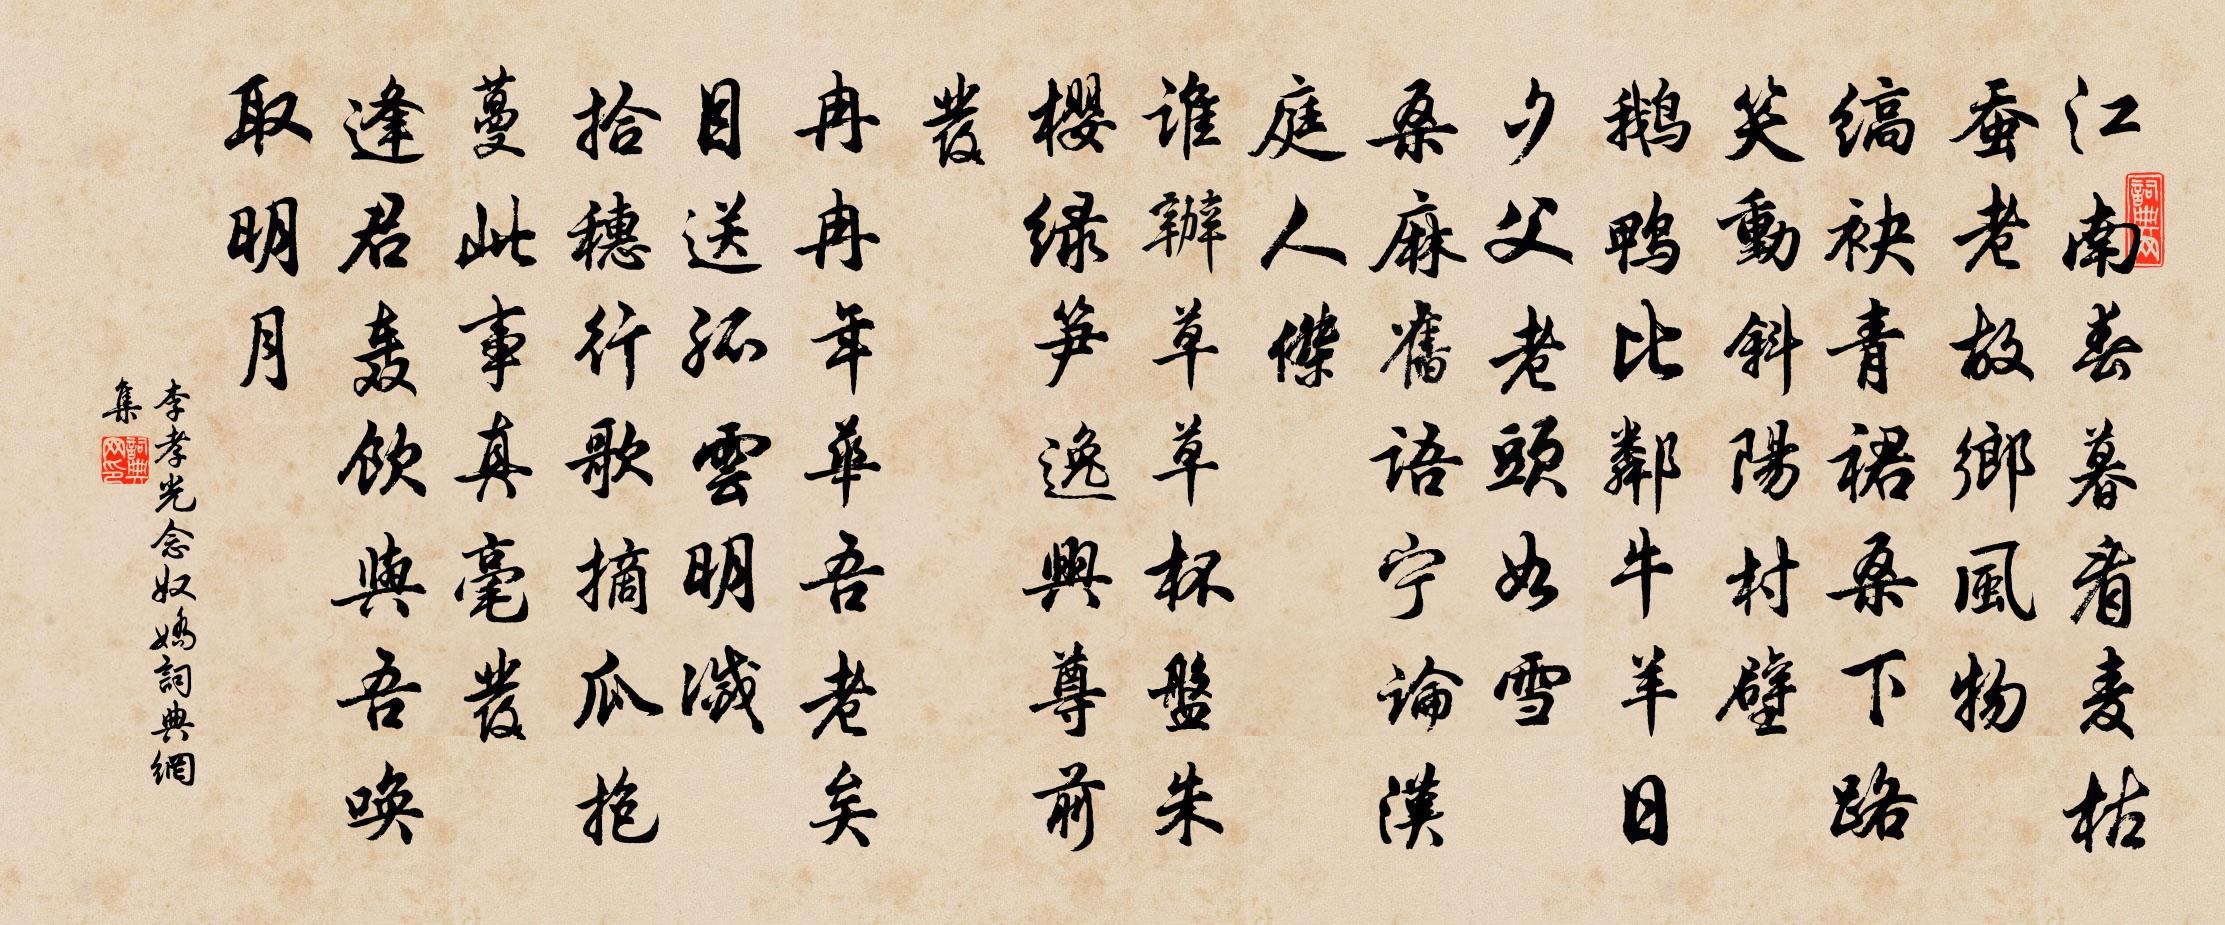 江南春暮看麦枯
蚕老故鄉風物
缟袂青裙桑下路
笑動斜陽村壁
鹅鸭比鄰牛羊日
夕父老頭如雪
桑麻舊语宁论漢
庭人傑
谁辦草草杯盤朱
樱绿笋逸興尊前
發
冉冉年華吾老矣
目送孤雲明滅
拾穗行歌摘瓜抱
蔓此事真毫發
逢君轰飲與吾唤
取明月
李孝光念奴嬌詞典網
集
詞典网
詞典网印